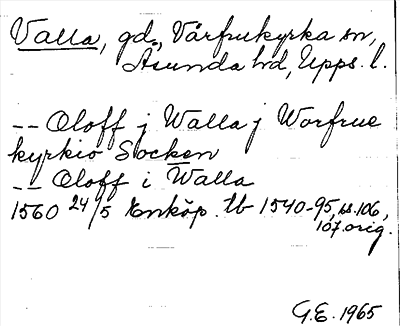 Valla, gd., Vårfrukyrka sn,
Åsunda hd, Upps. l.
-- Oloff j Walla j Worfrue
kyrkio Socken
-- Oloff i Walla
1560 24/5 Enköp. tb 1540-95, s. 106,
107. orig.
G.E. 1965